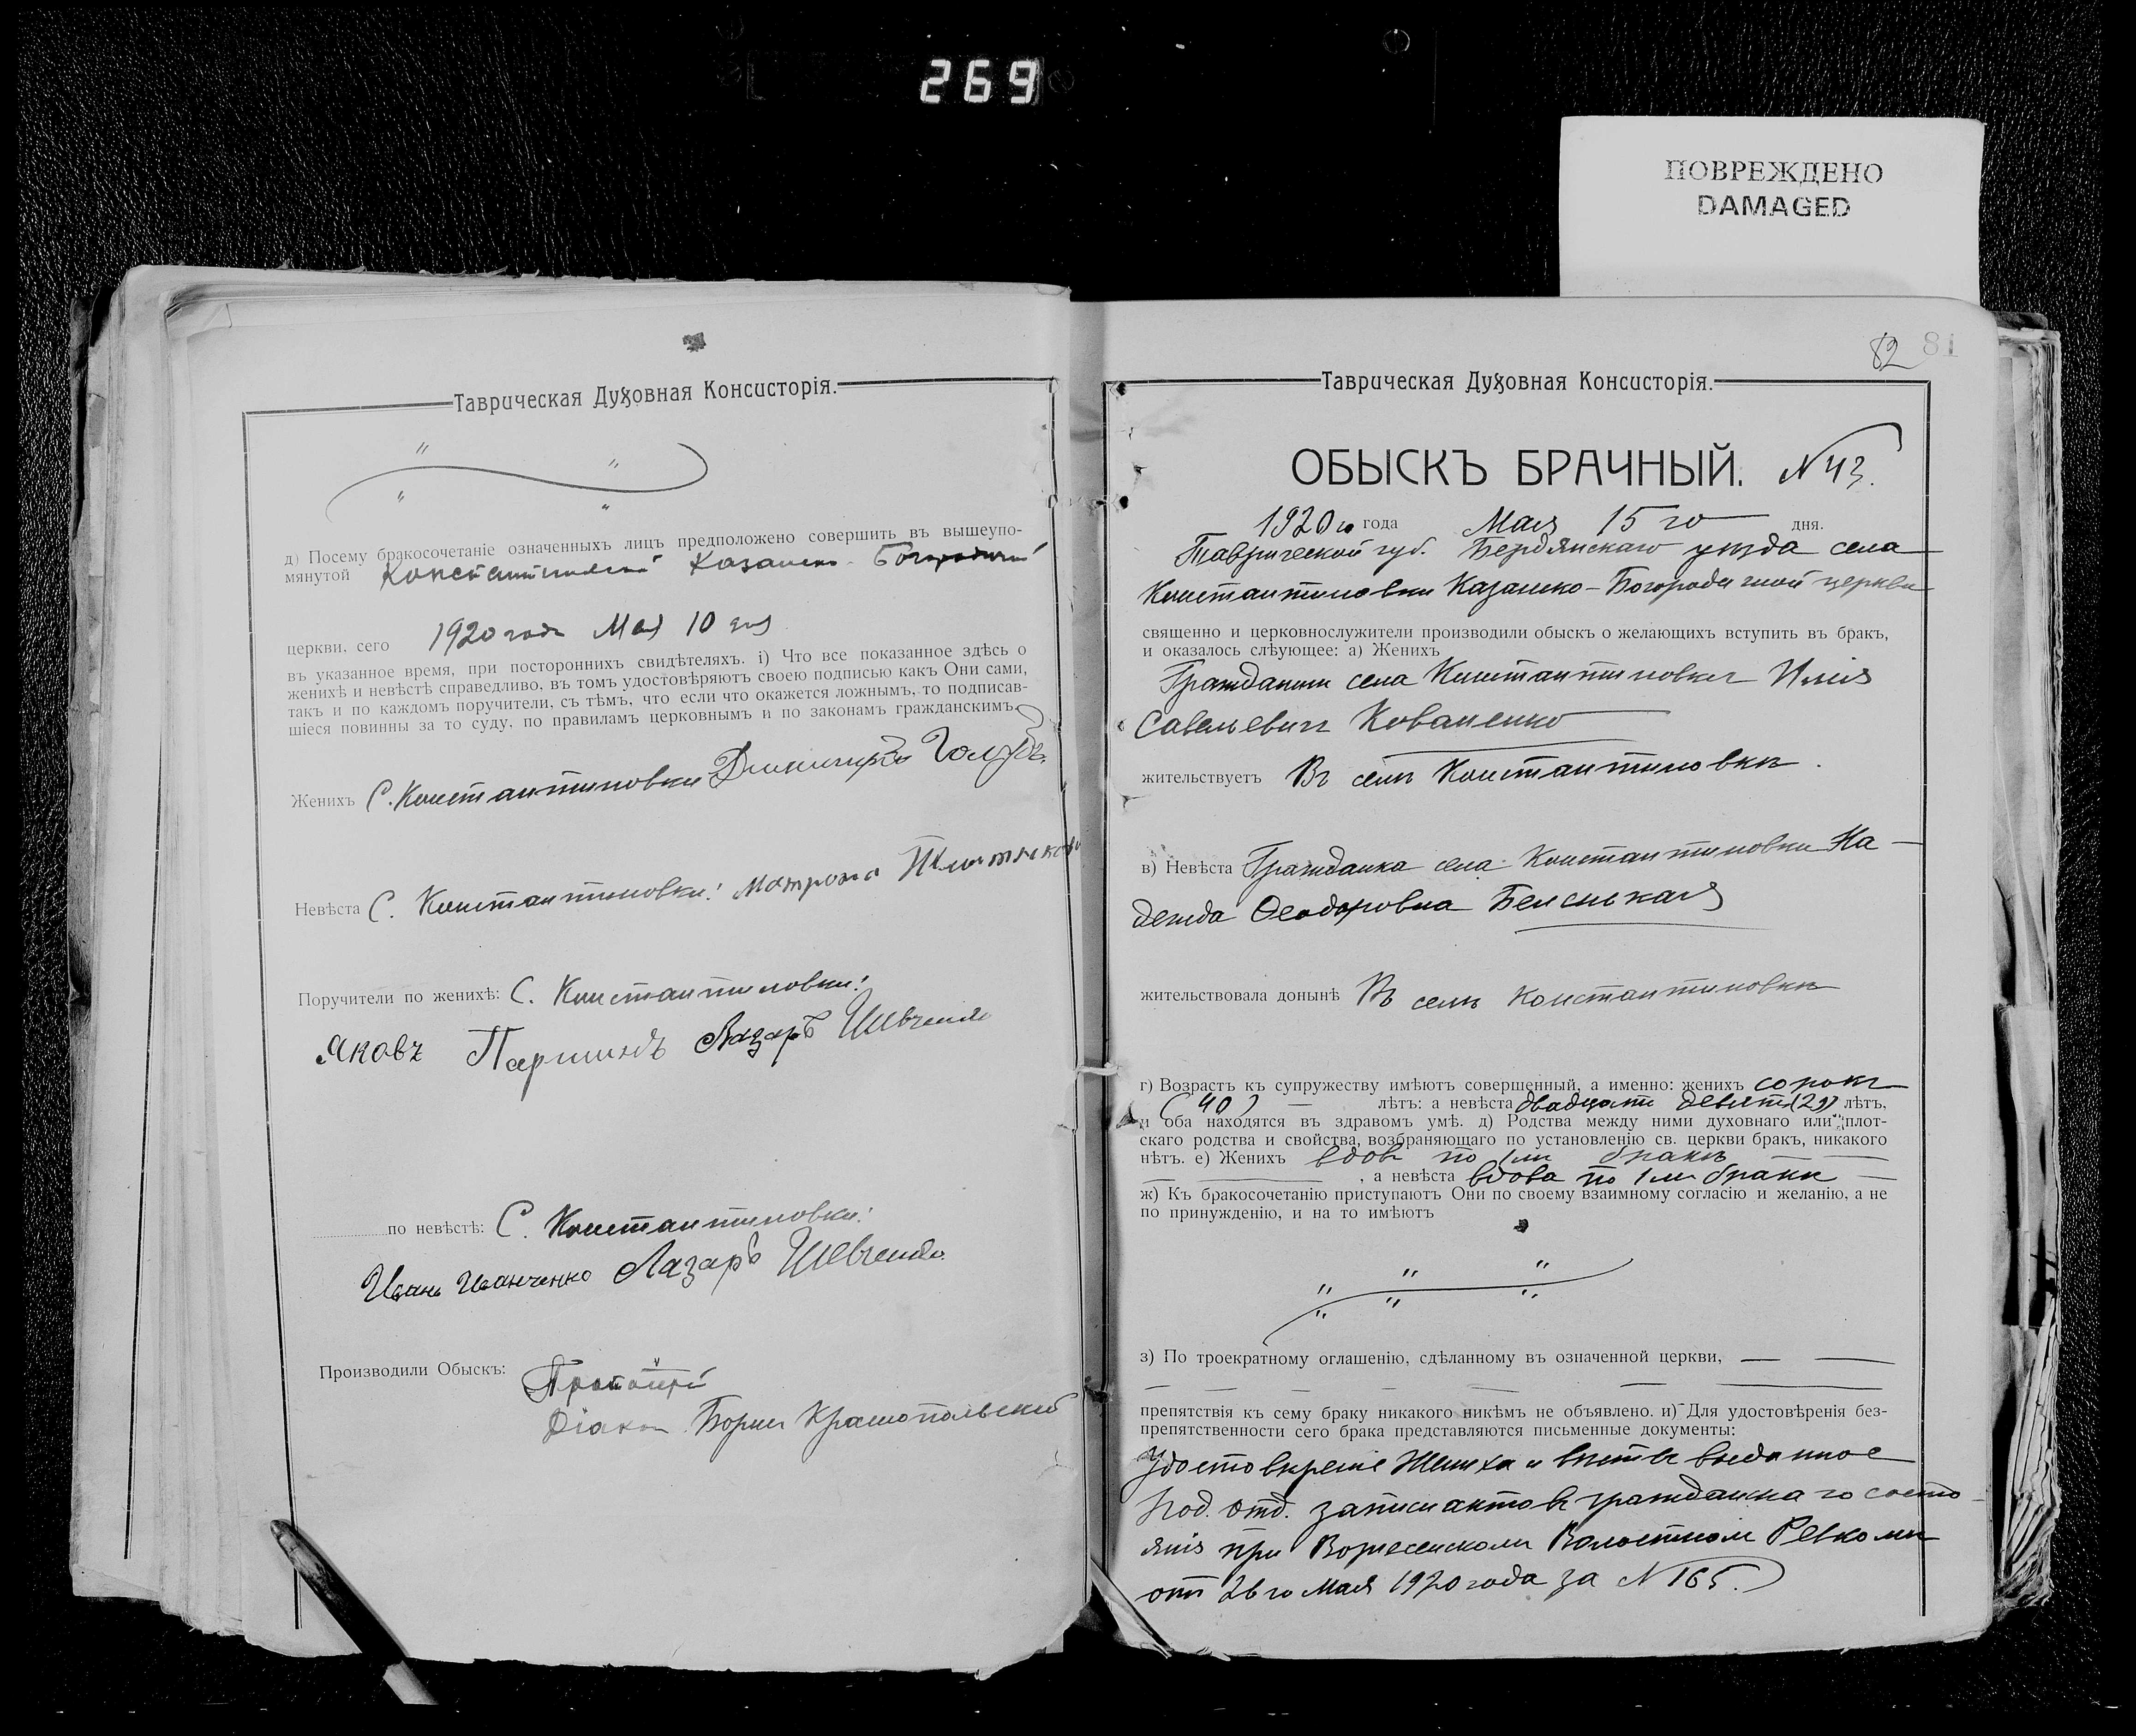 269
ПОВРЕЖДЕНО
DAMAGED
Таврическая Духовная Консисторія.
д) Посему бракосочетаніе означенныхъ лицъ предположено совершить въ вышеупо-
мянутой Константиновской Казанско-Богородичной
церкви, сего 1920 года Мая 10 дня
въ указанное время, при постороннихъ свидѣтеляхъ. і) Что все показанное здѣсь о
женихѣ и невѣстѣ справедливо, въ томъ удостовѣряютъ своею подписью какъ Они сами,
такъ и по каждомъ поручители, съ тѣмъ, что если что окажется ложнымъ, то подписав-
шіеся повинны за то суду, по правиламъ церковнымъ и по законамъ гражданскимъ.
Женихъ С. Константиновки Димитрій
Невѣста С. Константиновки: Матрона
Поручители по женихѣ: С. Константиновки:
Яковъ Паршинъ Лазарь Шевченко
по невѣстѣ: С. Константиновки:
Иванъ Иванченко Лазарь Шевченко
Производили Обыскъ:
Діакон Борис Краснопольский
82 81
Таврическая Духовная Консисторія.
ОБЫСКЪ БРАЧНЫЙ. N 43.
1920 го года Мая 15 го дня.
Таврической губ. Бердянскаго уезда села
Константиновки Казанско-Богородичной церкви
священно и церковнослужители производили обыскъ о желающихъ вступить въ бракъ,
и оказалось слѣующее: а) Женихъ
Гражданин села Константиновки Илія
Савельевич Коваленко
жительствуетъ Въ селѣ Константиновкѣ.
в) Невѣста Гражданка села Константиновки На-
дежда Феодоровна
жительствовала донынѣ Въ селѣ Константиновкѣ
г) Возрастъ къ супружеству имѣютъ совершенный, а именно: женихъ сорокъ
(40) — лѣтъ: а невѣста двадцати девяти (29) лѣтъ,
и оба находятся въ здравомъ умѣ. д) Родства между ними духовнаго или плот-
скаго родства и свойства, возбраняющаго по установленію св. церкви бракъ, никакого
нѣтъ. е) Женихъ вдов по 1 м бракѣ
, а невѣста вдова по 1 м бракѣ
ж) Къ бракосочетанію приступаютъ Они по своему взаимному согласію и желанію, а не
по принужденію, и на то имѣютъ
з) По троекратному оглашенію, сдѣланному въ означенной церкви,
препятствія къ сему браку никакого никѣмъ не объявлено. и) Для удостовѣренія без-
препятственности сего брака представляются письменные документы:
Удостовѣреніе Жениха и выданное
Под. отд. записи актов гражданскаго состо-
янія при Вознесенском Волостном Ревкомѣ
от 26 го Мая 1920 года за N 165.